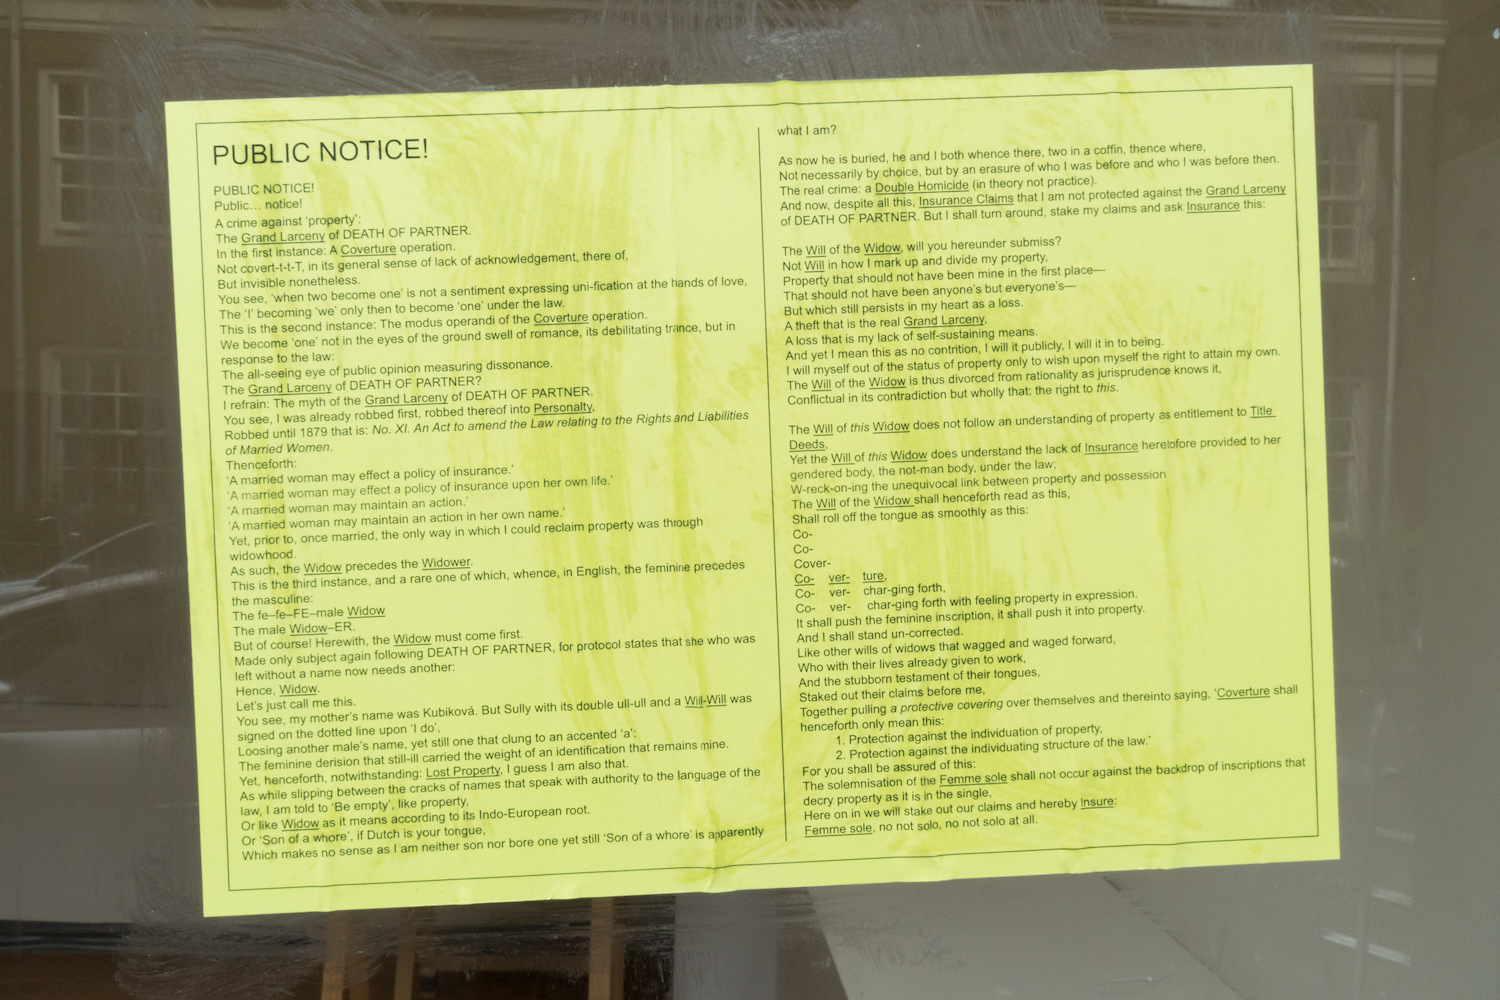 PUBLIC NOTICE!
PUBLIC NOTICE!
Public... notice!
A crime against 'property':
The Grand Larceny of DEATH OF PARTNER.
In the first instance: A Coverture operation.
Not covert-t-t-T, in its general sense of lack of acknowledgement, there of,
But invisible nonetheless.
You see, 'when two become one' is not a sentiment expressing uni-fication at the hands of love,
The 'I' becoming 'we' only then to become 'one' under the law.
This is the second instance: The modus operandi of the Coverture operation.
We become 'one' not in the eyes of the ground swell of romance, its debilitating trance, but in
response to the law:
The all-seeing eye of public opinion measuring dissonance.
The Grand Larceny of DEATH OF PARTNER?
I refrain: The myth of the Grand Larceny of DEATH OF PARTNER.
You see, I was already robbed first, robbed thereof into Personalty,
Robbed until 1879 that is: No. XI. An Act to amend the Law relating to the Rights and Liabilities
of Married Women.
Thenceforth:
'A married woman may effect a policy of insurance.'
'A married woman may effect a policy of insurance upon her own life.'
'A married woman may maintain an action.'
'A married woman may maintain an action in her own name.'
Yet, prior to, once married, the only way in which I could reclaim property was through
widowhood.
As such, the Widow precedes the Widower.
This is the third instance, and a rare one of which, whence, in English, the feminine precedes
the masculine:
The fe–fe–FE–male Widow
The male Widow–ER.
But of course! Herewith, the Widow must come first.
Made only subject again following DEATH OF PARTNER, for protocol states that she who was
left without a name now needs another:
Hence, Widow.
Let's just call me this.
You see, my mother's name was Kubiková. But Sully with its double ull-ull and a Will-Will was
signed on the dotted line upon 'I do',
Loosing another male's name, yet still one that clung to an accented 'a':
The feminine derision that still-ill carried the weight of an identification that remains mine.
Yet, henceforth, notwithstanding: Lost Property, I guess I am also that.
As while slipping between the cracks of names that speak with authority to the language of the
law, I am told to 'Be empty', like property,
Or like Widow as it means according to its Indo-European root.
Or 'Son of a whore', if Dutch is your tongue,
Which makes no sense as I am neither son nor bore one yet still 'Son of a whore' is apparently
what I am?
As now he is buried, he and I both whence there, two in a coffin, thence where,
Not necessarily by choice, but by an erasure of who I was before and who I was before then.
The real crime: a Double Homicide (in theory not practice).
And now, despite all this, Insurance Claims that I am not protected against the Grand Larceny
of DEATH OF PARTNER. But I shall turn around, stake my claims and ask Insurance this:
The Will of the Widow, will you hereunder submiss?
Not Will in how I mark up and divide my property,
Property that should not have been mine in the first place—
That should not have been anyone's but everyone's—
But which still persists in my heart as a loss.
A theft that is the real Grand Larceny,
A loss that is my lack of self-sustaining means.
And yet I mean this as no contrition, I will it publicly, I will it in to being.
I will myself out of the status of property only to wish upon myself the right to attain my own.
The Will of the Widow is thus divorced from rationality as jurisprudence knows it,
Conflictual in its contradiction but wholly that: the right to this.
The Will of this Widow does not follow an understanding of property as entitlement to Title
Deeds,
Yet the Will of this Widow does understand the lack of Insurance heretofore provided to her
gendered body, the not-man body, under the law;
W-reck-on-ing the unequivocal link between property and possession
The Will of the Widow shall henceforth read as this,
Shall roll off the tongue as smoothly as this:
Co-
Co-
Cover-
Co- ver- ture,
Co- ver- char-ging forth,
Co- ver- char-ging forth with feeling property in expression.
It shall push the feminine inscription, it shall push it into property.
And I shall stand un-corrected.
Like other wills of widows that wagged and waged forward,
Who with their lives already given to work,
And the stubborn testament of their tongues,
Staked out their claims before me,
Together pulling a protective covering over themselves and thereinto saying, 'Coverture shall
henceforth only mean this:
1. Protection against the individuation of property,
2. Protection against the individuating structure of the law.'
For you shall be assured of this:
The solemnisation of the Femme sole shall not occur against the backdrop of inscriptions that
decry property as it is in the single,
Here on in we will stake out our claims and hereby Insure:
Femme sole, no not solo, no not solo at all.